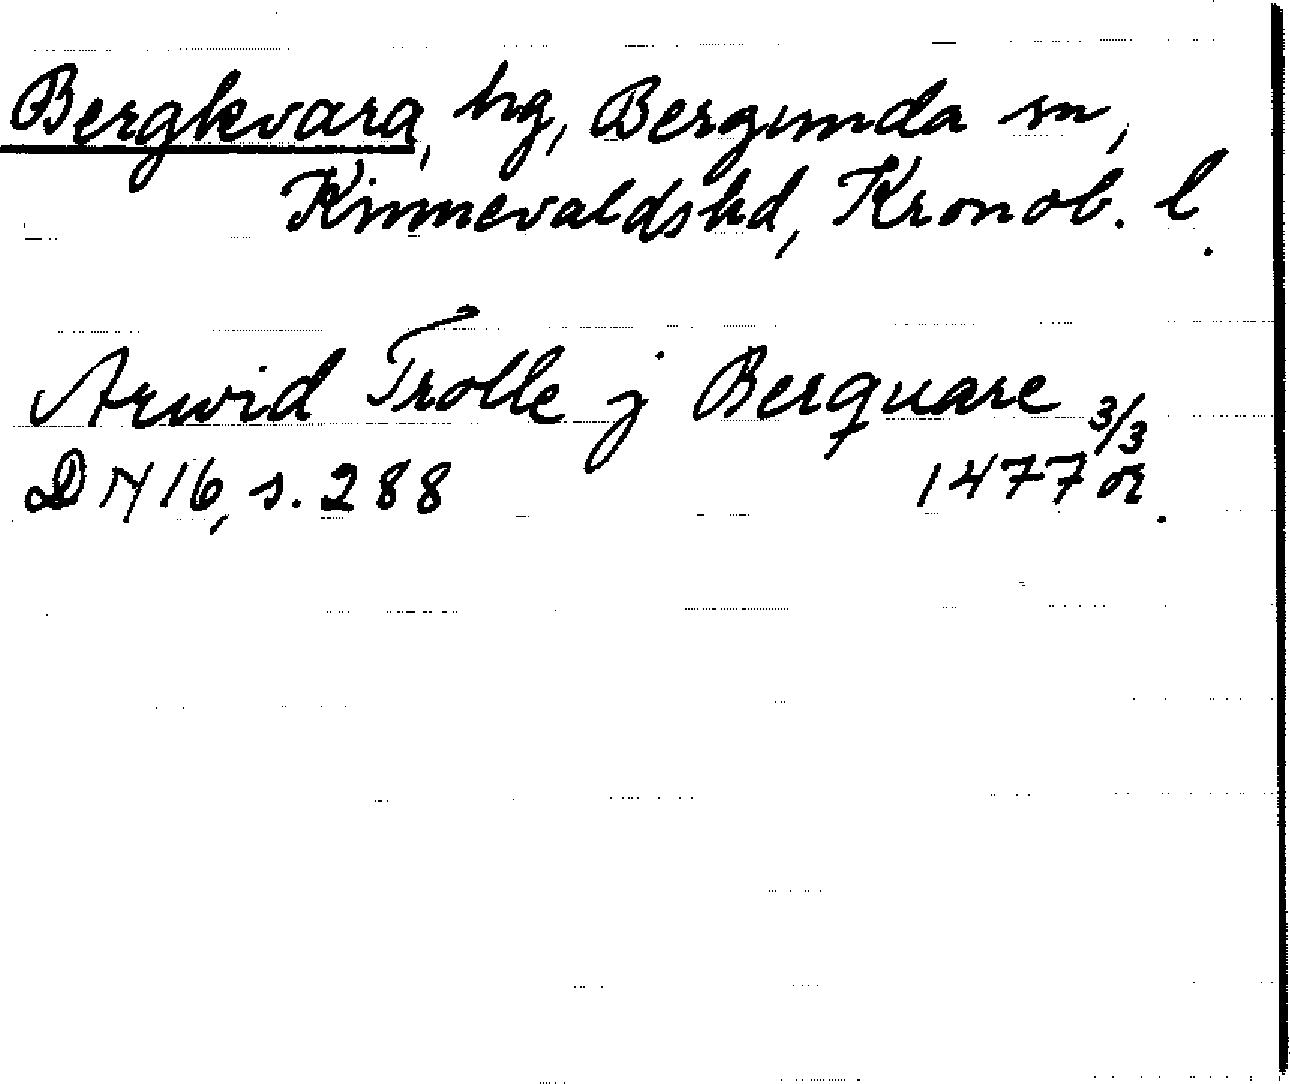 Bergkvara, hg, Bergunda sn,
Kinnevaldshd, Kronob. l.
Arwid Trolle j Berquare 3/3
DN 16, s. 288 1477 or.